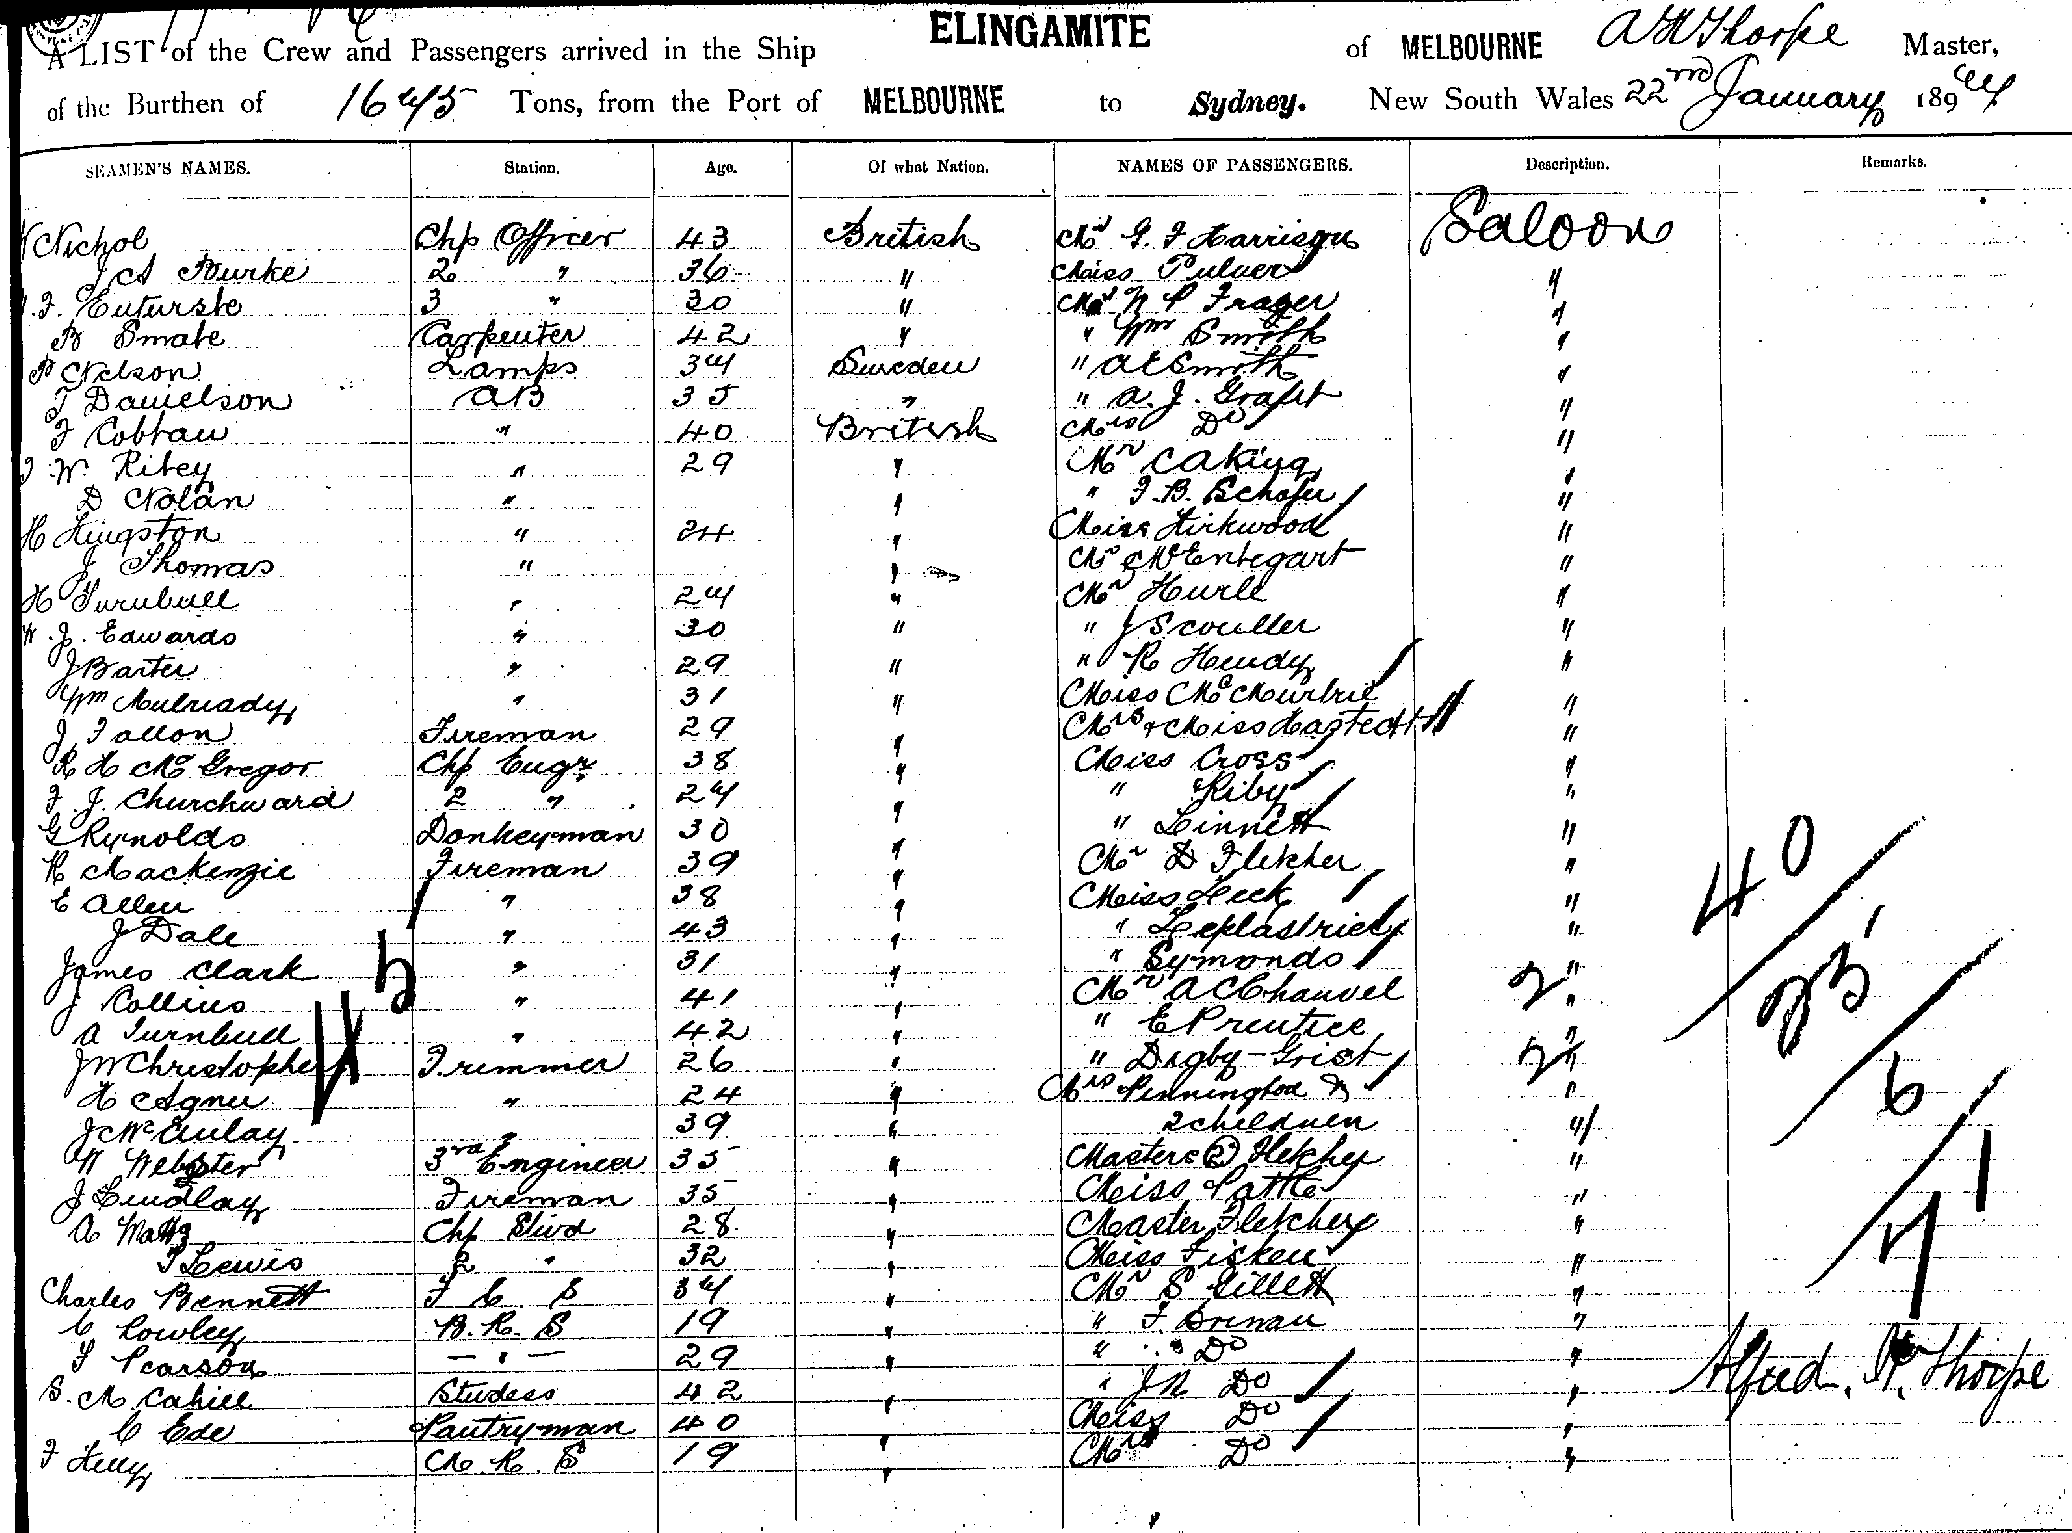 A LIST of the Crew and Passengers arrived in the Ship ELINGAMITE of MELBOURNE A W Thorpe Master,
of the Burthen of 1645 Tons, from the Port of MELBOURNE to Sydney. New South Wales 22nd January 1894
SEAMEN'S NAMES. Station. Age. Of what Nation. NAMES OF PASSENGERS. Description. Remarks.
Nichol Chf Officer 43 British Mr G. F Harrison Saloon
J A Burke 2 " 36 " Miss Pulver "
F. 3 " 30 " Mr N P Frazer "
B Smale Carpenter 42 " " Wm Smith "
P Nelson Lamps 34 Sweden " A E Smith "
T Danielson AB 35 " " A. J. Grant "
F Cobhau " 40 British Mrs Do "
J W. Riley " 29 " Mr C A King "
D Nolan " " " F. B. Schafer "
H Kingston " 24 " Miss Kirkwood "
J Thomas " " Mr McEntegart "
H Turnbull " 24 " Mr Hurle "
W. J. Edwards " 30 " " J Scouller "
J Barter " 29 " " R Hendy "
Wm Mulready " 31 " Miss McMurtrie "
J Fallon Fireman 29 " Mrs & Miss "
R H McGregor Chf Engr 38 " Miss Cross "
F. J. Churchward 2 " 24 " " Riby "
G Rynolds Donkeyman 30 " " Linnett "
R Mackenzie Fireman 39 " Mr D Fletcher " 40
E Allen " 38 " Miss Heck "
J Dale " 43 " " Leplastrier "
James Clark 5 " 31 " " Symonds " 35
J Collins " 41 " Mr A C Chauvel 2 "
A Turnbull " 42 " " E Prentice "
J W Christopher 4 Trimmer 26 " " Digby-Grist 2 "
H Agnew " 24 " Mrs Pennington & " 6
J McAulay " 39 " 2 children "
W Webster 3rd Engineer 35 " Masters (2) Fletcher "
J Lindlay Fireman 35 " Miss Pattle " 41
A Watts Chf Stwd 28 " Master Fletcher "
T Lewis 2 " 32 " Miss Ficken "
Charles Bennett F C S 34 " Mr S Gillett "
C Rowley B. R. S 19 " " F. Brenan "
F Pearson — " — 29 " " " Do " Alfred. W. Thorpe
S. M Cahill Studess 42 " " J R Do "
C Ede Pantryman 40 " Miss Do "
F Kelly M. R. S 19 " Mrs Do "